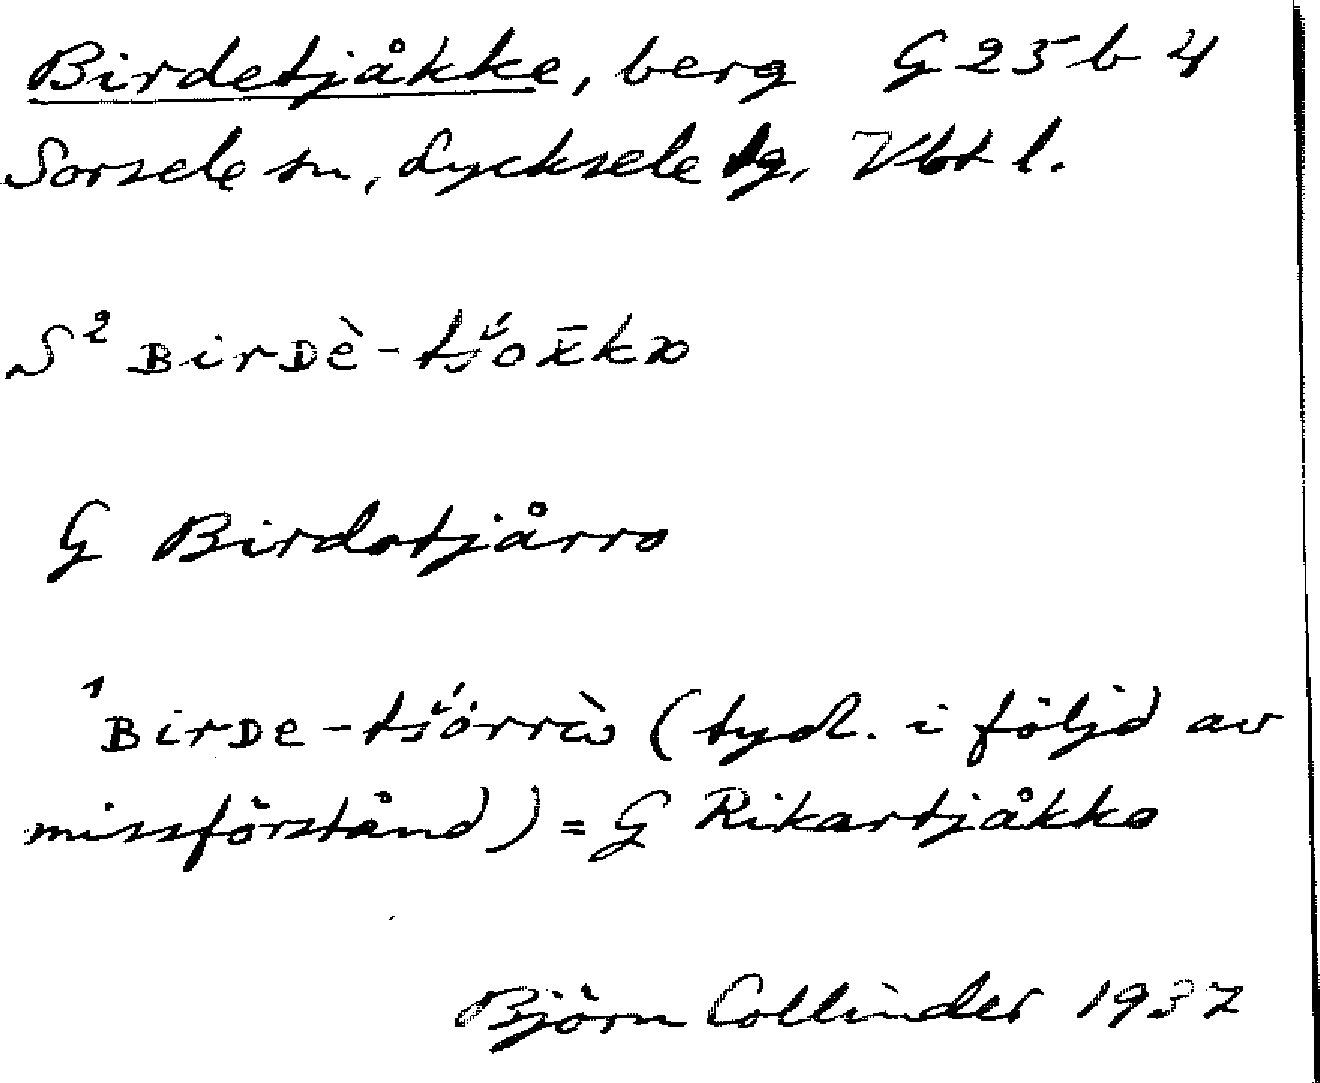 Birdetjåkke, berg G 25 b 4
Sorsele sn, Lycksele lg, Vbt l.
S² BirDè-tš́ox̄kɷ
G Birdotjårro
¹BirDe-tš́órrὼ (tyd. i följd av
missförstånd) = G Rikartjåkko
Björn Collinder 1937